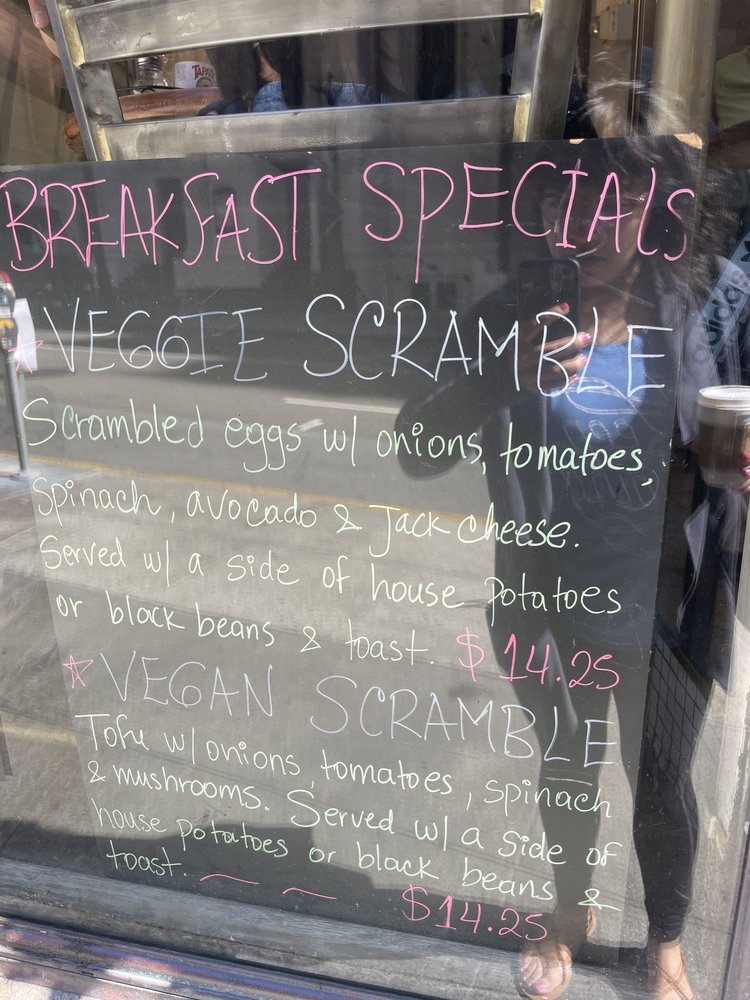 TAPAT
BREAKFAST SPECIALS
VEGGIE SCRAMBLE
Scrambled eggs w/ onions, tomatoes,
spinach, avocado & Jack cheese.
Served w/ a side of house potatoes
or black beans & toast. $14.25
VEGAN SCRAMBLE
Tofu w/ onions, tomatoes, spinach
& mushrooms. Served w/ a side of
house potatoes or black beans &
toast. $14.25
adidas